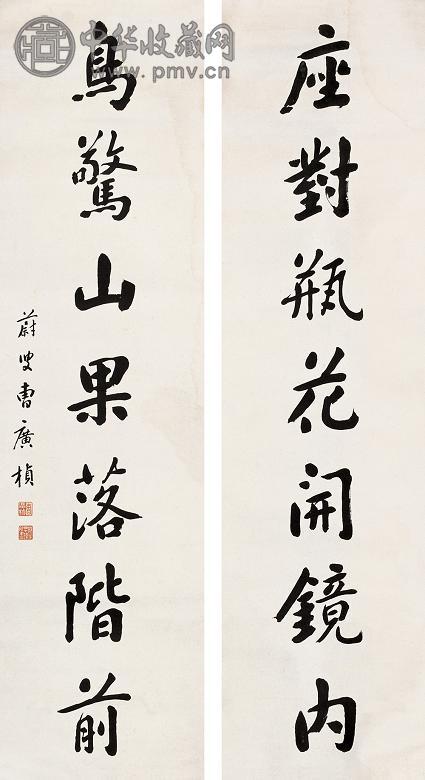 座對瓶花開鏡内
鳥驚山果落階前
蔚叟曹廣楨
中华收藏网
www.pmv.cn